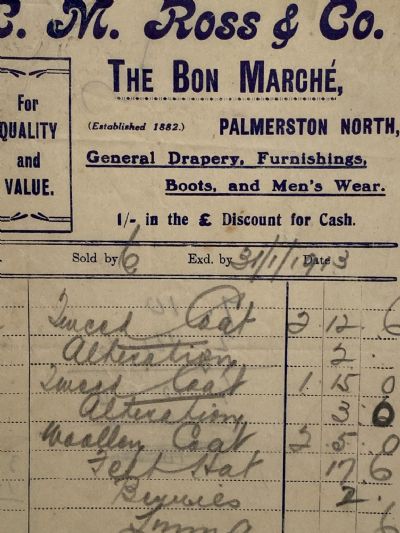 C. M. Ross & Co.
THE BON MARCHÉ,
For QUALITY and VALUE.
(Established 1882.) PALMERSTON NORTH,
General Drapery, Furnishings,
Boots, and Men's Wear.
1/- in the £ Discount for Cash.
Sold by 6 Exd. by Date 31/1/1913
Tweed Coat 2 12 6
Alteration 2 .
Tweed Coat 1 15 0
Alteration 3 0
Woollen Coat 2 5 0
Felt Hat 17 6
2 .
6